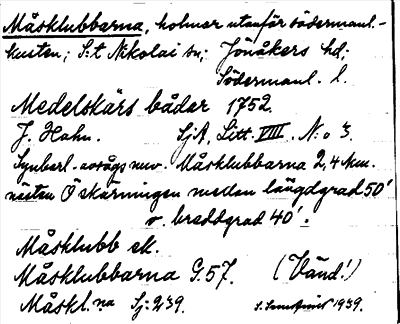 Måsklubbarna, holmar utanför södermanl.-
kusten; S:t Nikolai sn; Jönåkers hd;
Södermanl. l.
Medelskärs båder 1752.
J. Hahn. SjA, Litt. VIII. N:o 3.
Måsklubbarna 2,4 km.
nästan Ö skärningen mellan längdgrad 50'
o. breddgrad 40'.
Måsklubb sk.
Måsklubbarna G. 57. (Vänd!)
Måskl. na Sj: 239. 1939.